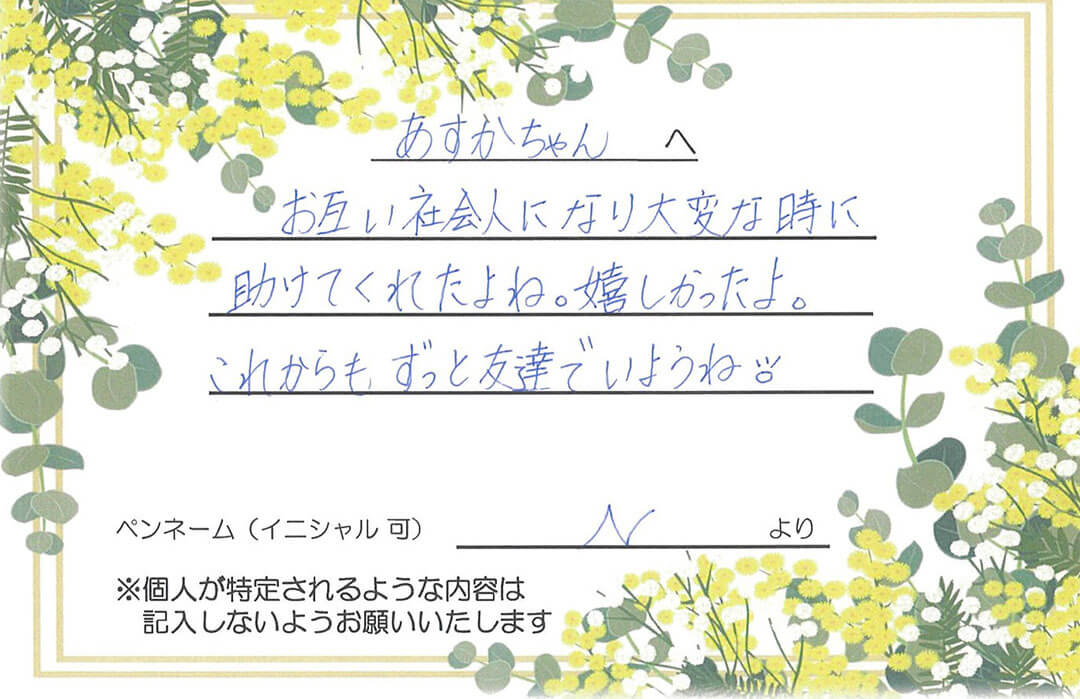 あすかちゃん へ
お互い社会人になり大変な時に
助けてくれたよね。嬉しかったよ。
これからもずっと友達でいようね
ペンネーム（イニシャル 可） N より
※個人が特定されるような内容は
記入しないようお願いいたします